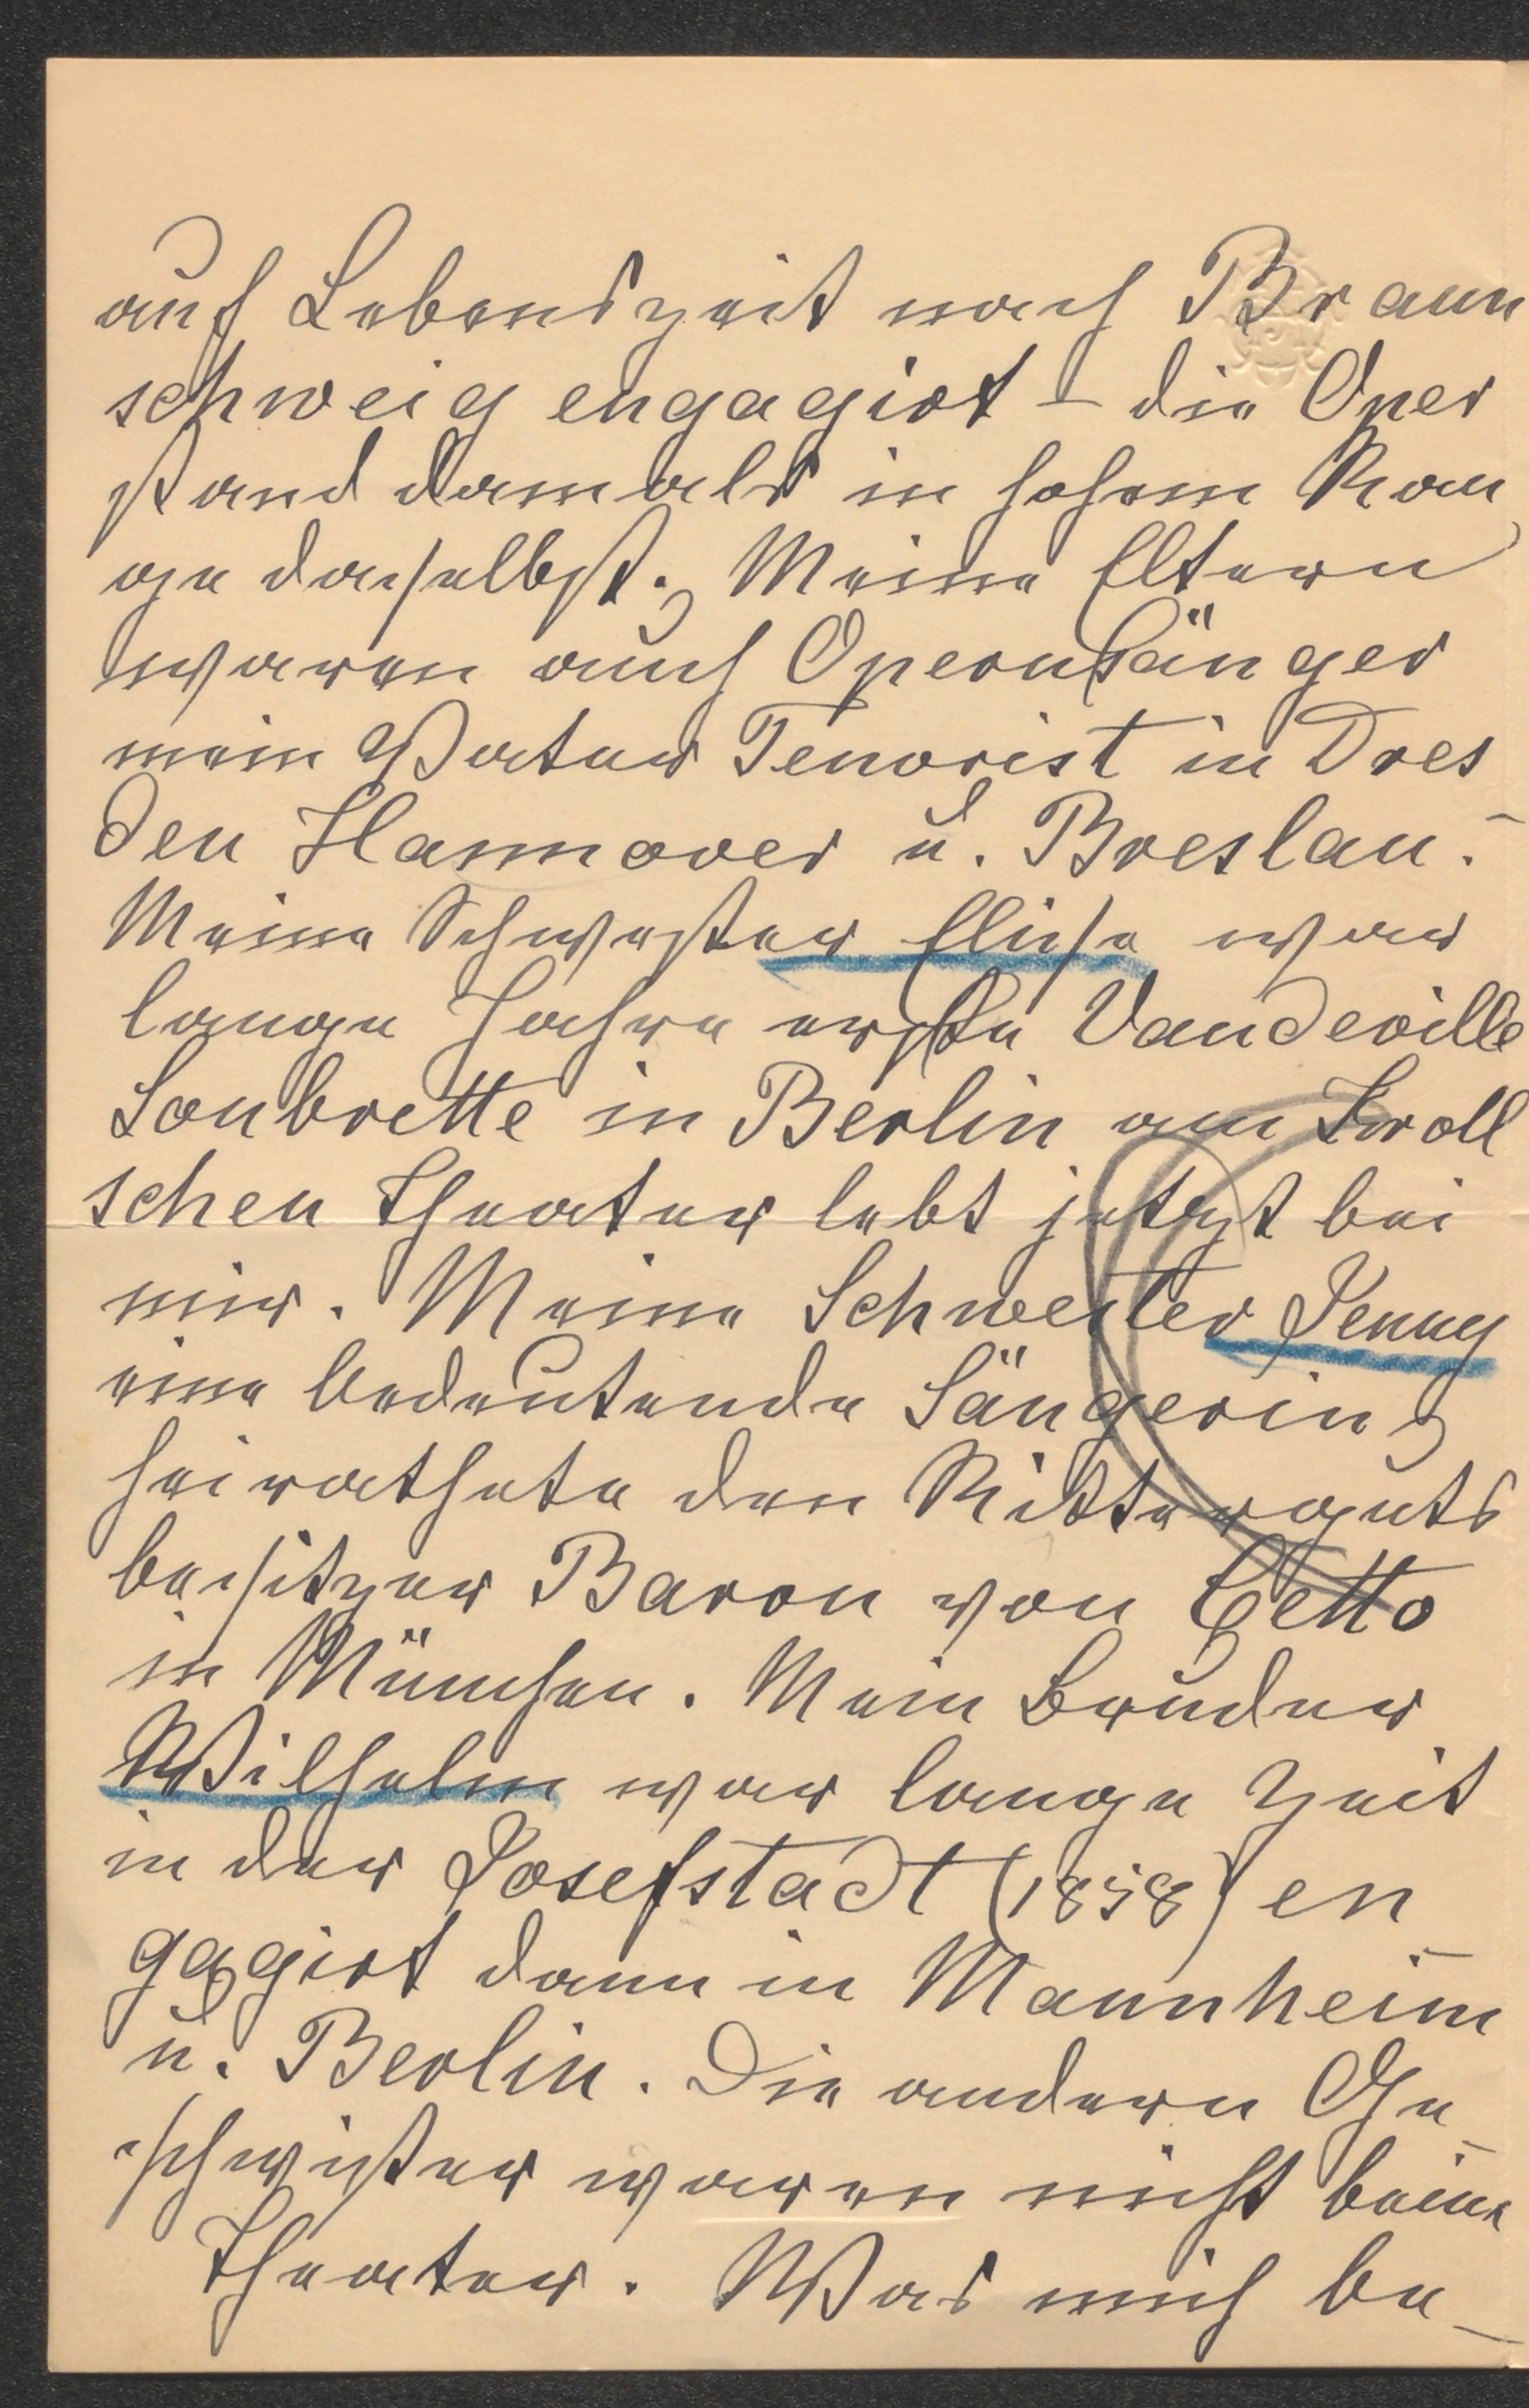 auf Lebenszeit nach Braun
schweig engagirt – die Oper
stand damals in hohem Ran
ge daselbst. Meine Eltern
waren auch Opernsänger
mein Vater Tenorist in Dres
den Hannover u. Breslau.–
Meine Schwester Elise war
lange Jahre erste Vaudeville
Soubrette in Berlin am Kroll
schen Theater lebt jetzt bei
mir. Meine Schwester Jenny
eine bedeutende Sängerin,
heirathete den Ritterguts
besitzer Baron von Cetto
in München. Mein Bruder
Wilhelm war lange Zeit
in der Josefstadt (1858) en
gagirt dann in Mannheim
u. Berlin. Die andern Ge–
schwister waren nicht beim
Theater. Was mich be–